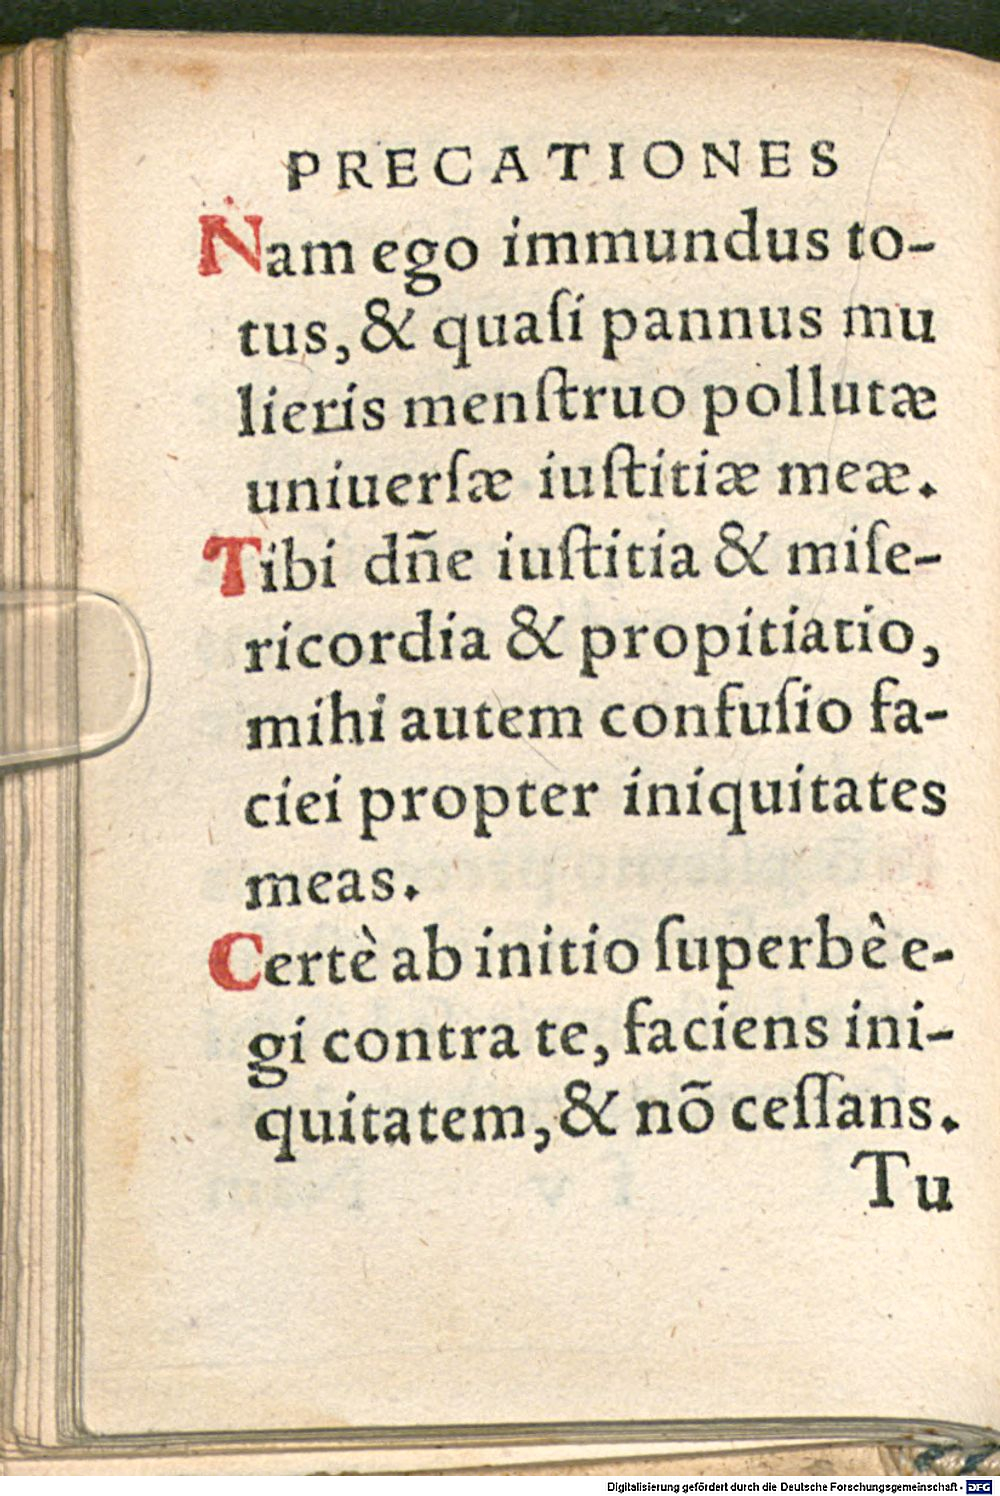 PRECATIONES
Nam ego immundus to-
tus, & quaſi pannus mu
lieris menſtruo pollutæ
uniuerſæ iuſtitiæ meæ.
Tibi dñe iuſtitia & miſe-
ricordia & propitiatio,
mihi autem confuſio fa-
ciei propter iniquitates
meas.
Certè ab initio ſuperbè e-
gi contra te, faciens ini-
quitatem, & nõ ceſſans.
Tu
Digitalisierung gefördert durch die Deutsche Forschungsgemeinschaft - DFG